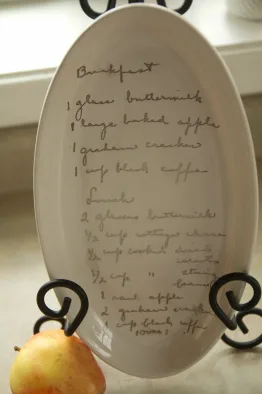 Breakfast
1 glass buttermilk
1 large baked apple
1 graham cracker
1 cup black coffee
Lunch
2 glasses buttermilk
1/2 cup cottage cheese
1/2 cup cooked
1/2 cup " string
beans
1 raw apple
2 graham
1 cup black coffee